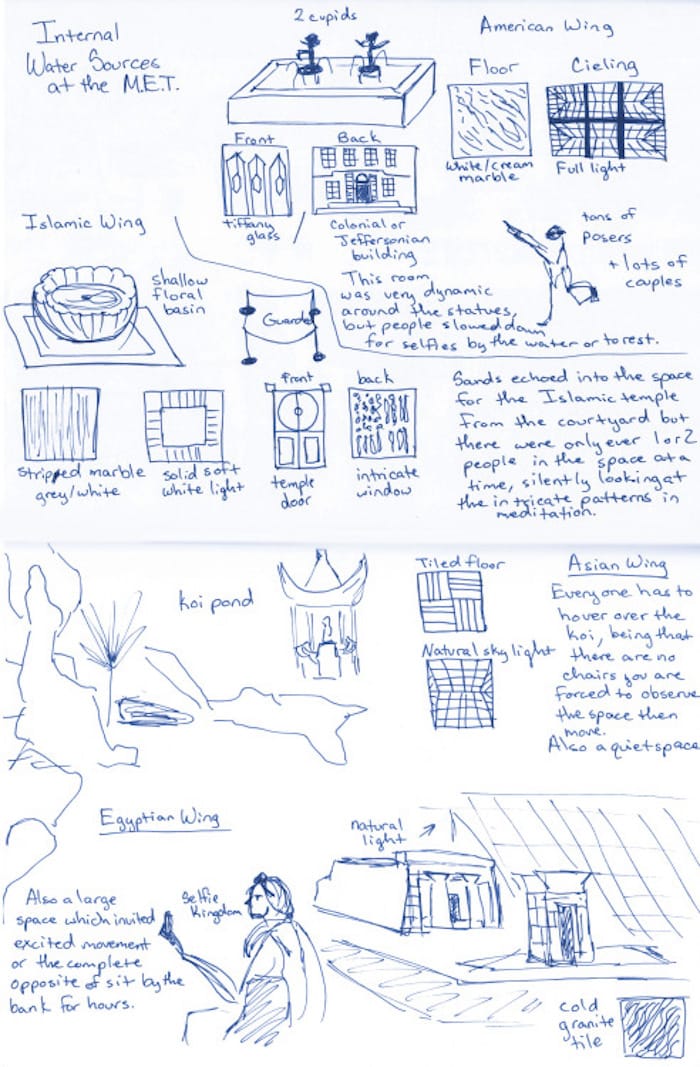 Internal
Water Sources
at the M.E.T.
2 cupids
American Wing
Floor
Cieling
white/cream
marble
Full light
Front
Back
tiffany
glass
Colonial or
Jeffersonian
building
tons of
posers
+ lots of
couples
This room
was very dynamic
around the statues,
but people slowed down
for selfies by the water or to rest.
Islamic Wing
shallow
floral
basin
Guarded
stripped marble
grey/white
solid soft
white light
front
temple
door
back
intricate
window
Sands echoed into the space
for the Islamic temple
from the courtyard but
there were only ever 1 or 2
people in the space at a
time, silently looking at
the intricate patterns in
meditation.
koi pond
Tiled floor
Natural sky light
Asian Wing
Everyone has to
hover over the
koi, being that
there are no
chairs you are
forced to observe
the space then
move.
Also a quiet space
Egyptian Wing
Also a large
space which invited
excited movement
or the complete
opposite of sit by the
bank for hours.
Selfie
Kingdom
natural
light
cold
granite
tile